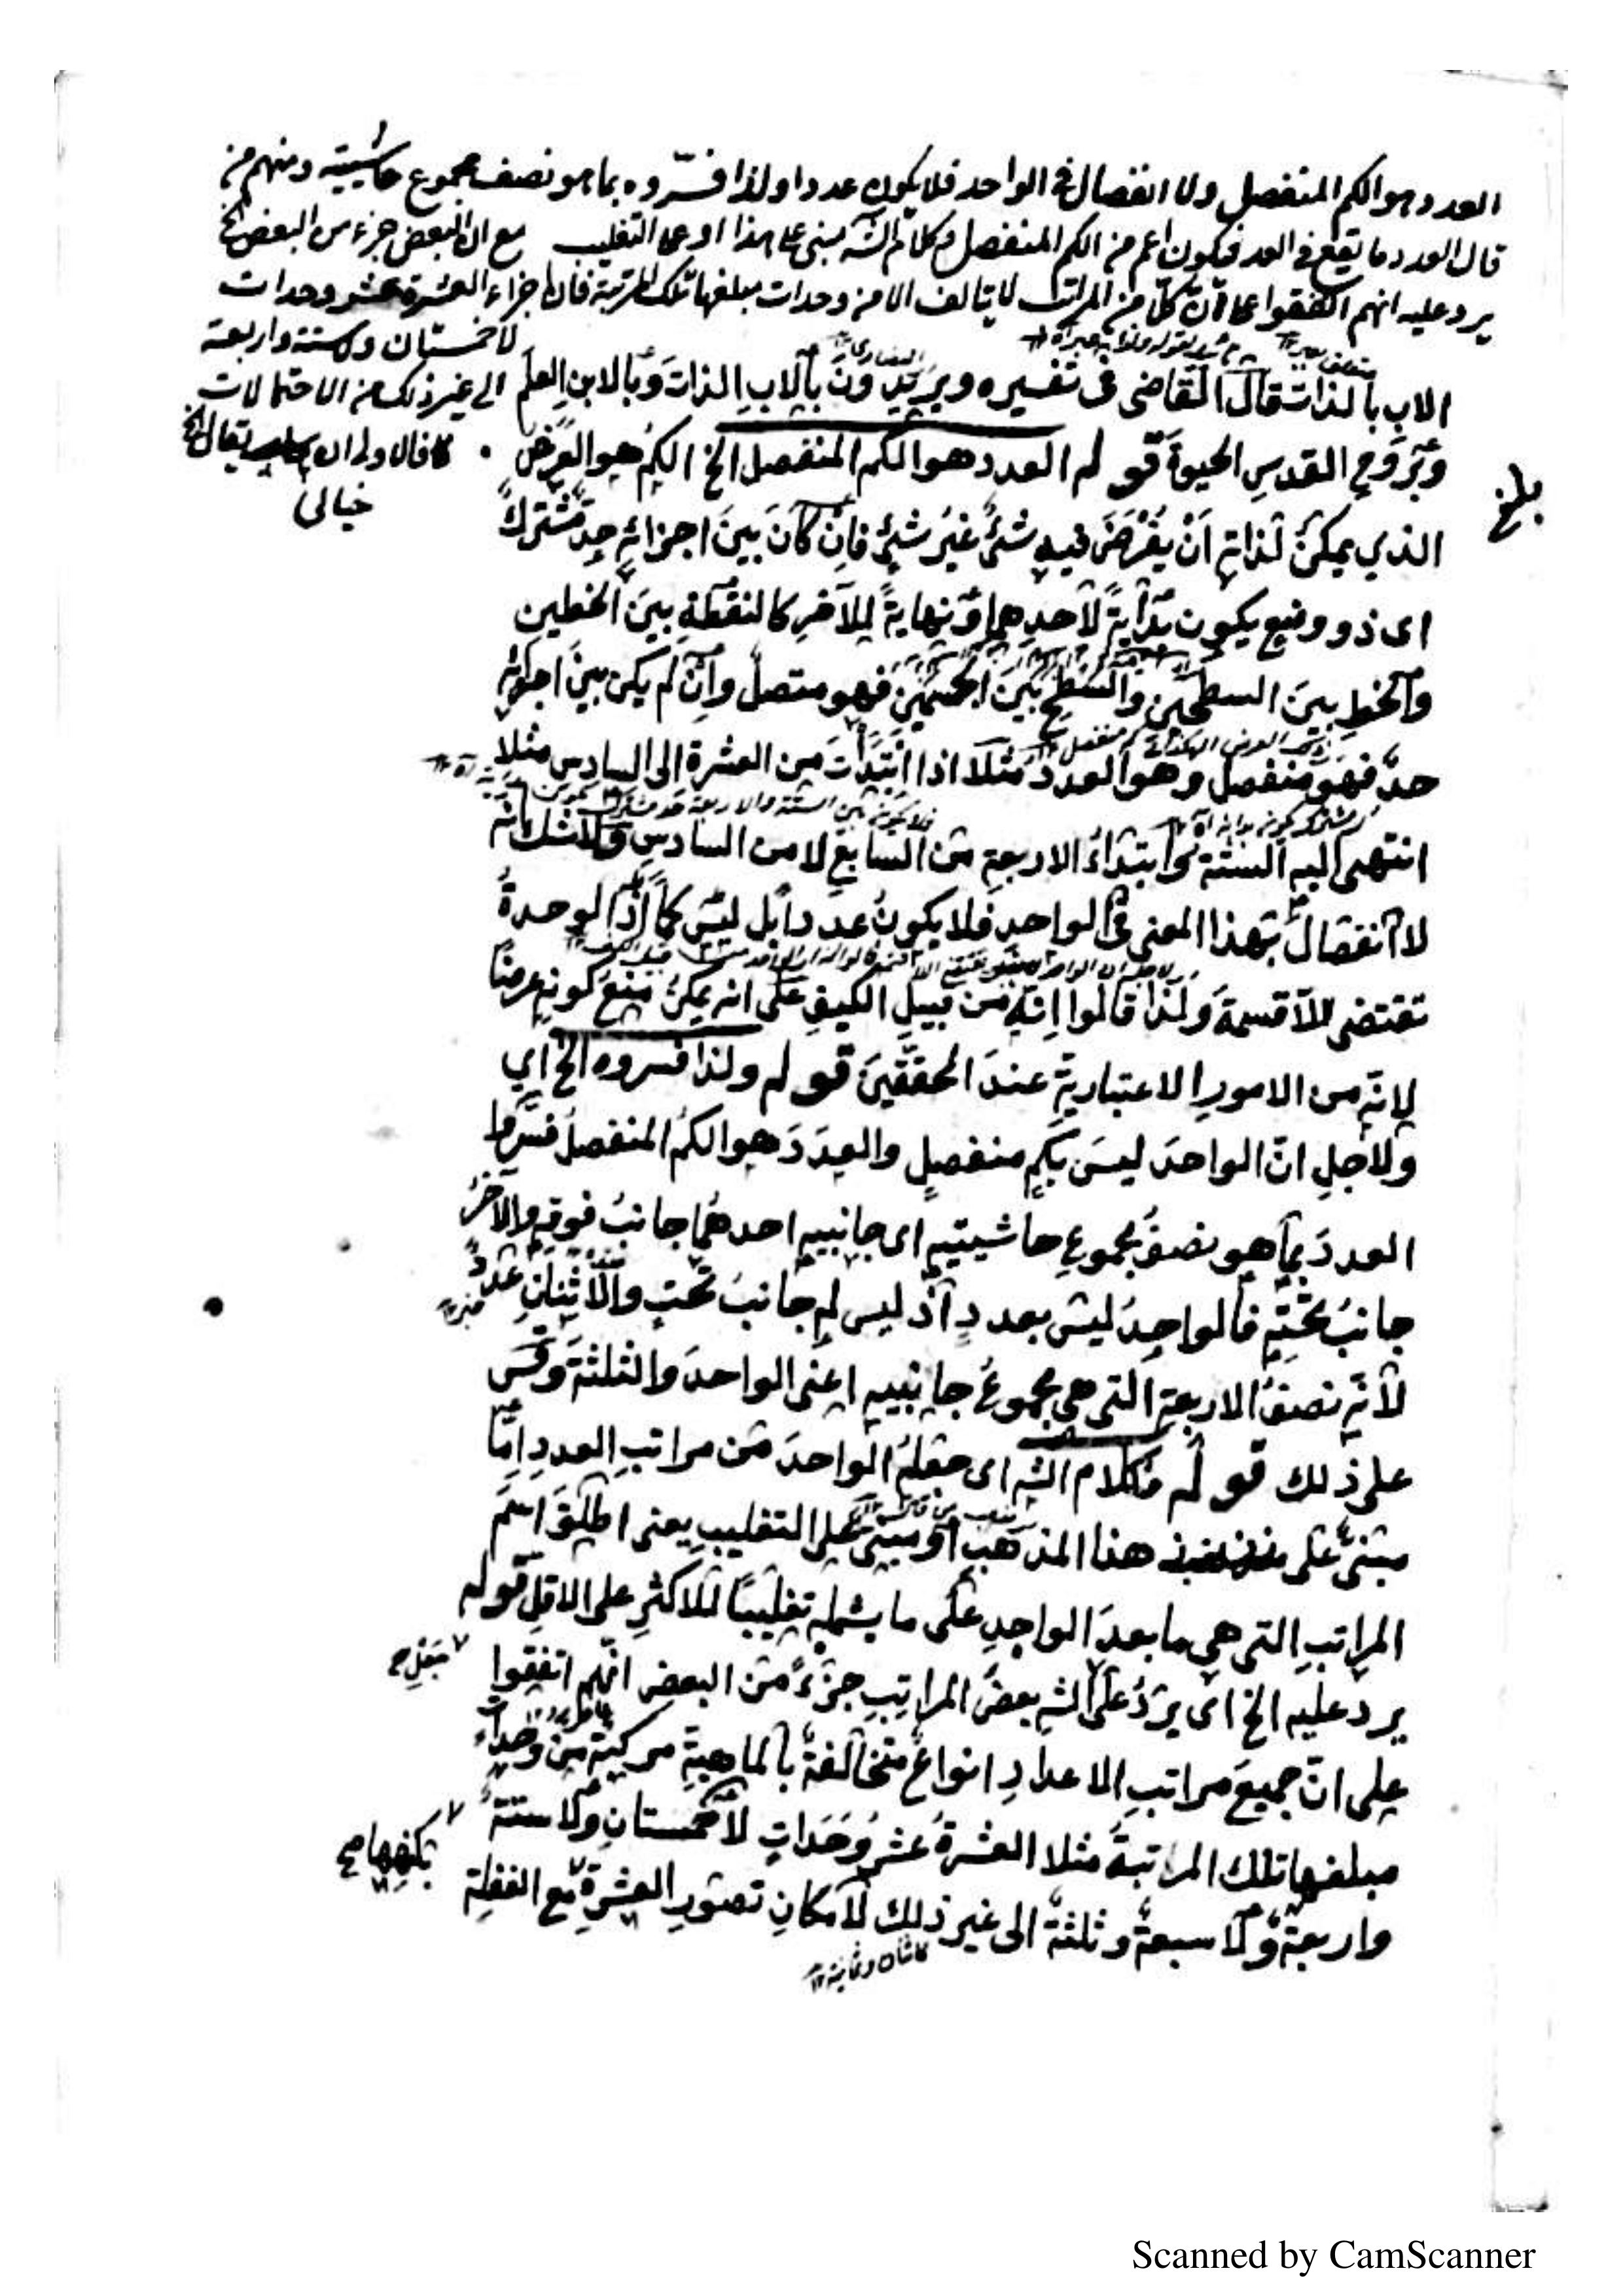 العدد هو الكم المنفصل ولا انفصال في الواحد فلا يكون عددا ولذا فسّروه بما هو نصف مجموع حاشيتيه ومنهم من
قال العدد ما يقع في العد فيكون اعم من الكم المنفصل فكلام الشه مبنى على هذا او على التغليب مع ان البعض جزء من البعض الخ
يرد عليه انهم اتفقوا على ان كلّا من المراتب لا يتالف الا من وحدات مبلغها تلك المرتبة فان اجزاء العشرة عشر وحدات
لا خمستان ولا ستة واربعة
الى غير ذلك من الاحتمالات
كما قال
خيالى
الاب بالذات قال القاضى فى تفسيره ويريدون بالاب الذات وبالابن العلم
وبروح القدس الحيوة قوله العدد هو الكم المنفصل الخ الكم هو العرض
بلغ
الذي يمكن لذاته ان يفرض فيه شئ غير شئ فان كان بين اجزائه حد مشترك
اى ذو وضع يكون بداية لاحدهما ونهاية للآخر كالنقطة بين الخطين
والخط بين السطحين والسطح بين الجسمين فهو متصل وان لم يكن بين اجزائه
حد فهو منفصل وهو العدد مثلا اذا ابتدأت من العشرة الى السادس مثلا
انتهى اليه الستة وابتداء الاربعة من السابع لا من السادس ولا شك انه
لا انفصال بهذا المعنى في الواحد فلا يكون عددا بل ليس كما اذ الوحدة
تقتضى اللاقسمة ولذا قالوا انه من قبيل الكيف على انه يمكن منع كونه عرضا
لانه من الامور الاعتبارية عند المحققين قوله ولذا فسروه الخ اي
ولاجل انّ الواحد ليس بكم منفصل والعدد هو الكم المنفصل فسروا
العدد بما هو نصف مجموع حاشيتيه اى جانبيه احدهما جانب فوقه والآخر
جانب تحته فالواحد ليس بعدد اذ ليس له جانب تحت والاثنان عدد
لانه نصف الاربعة التى هى مجموع جانبيه اعنى الواحد والثلثة وقس
على ذلك قوله فكلام الشه اى جعله الواحد من مراتب العدد امّا
مبنى على هذا المذهب او مبنى على التغليب يعنى اطلق اسم
المراتب التى هى ما بعد الواحد على ما يشمله تغليبا للاكثر على الاقل قوله
يرد عليه الخ اى يرد على الشه بعض المراتب جزء من البعض انهم اتفقوا
على انّ جميع مراتب الاعداد انواع متخالفة بالماهية مركبة من وحدات
مبلغها تلك المراتبة مثلا العشرة عشر وحدات لا خمستان ولا ستة
واربعة ولا سبعة وثلثة الى غير ذلك لامكان تصور العشرة مع الغفلة
بكنهها صح
Scanned by CamScanner